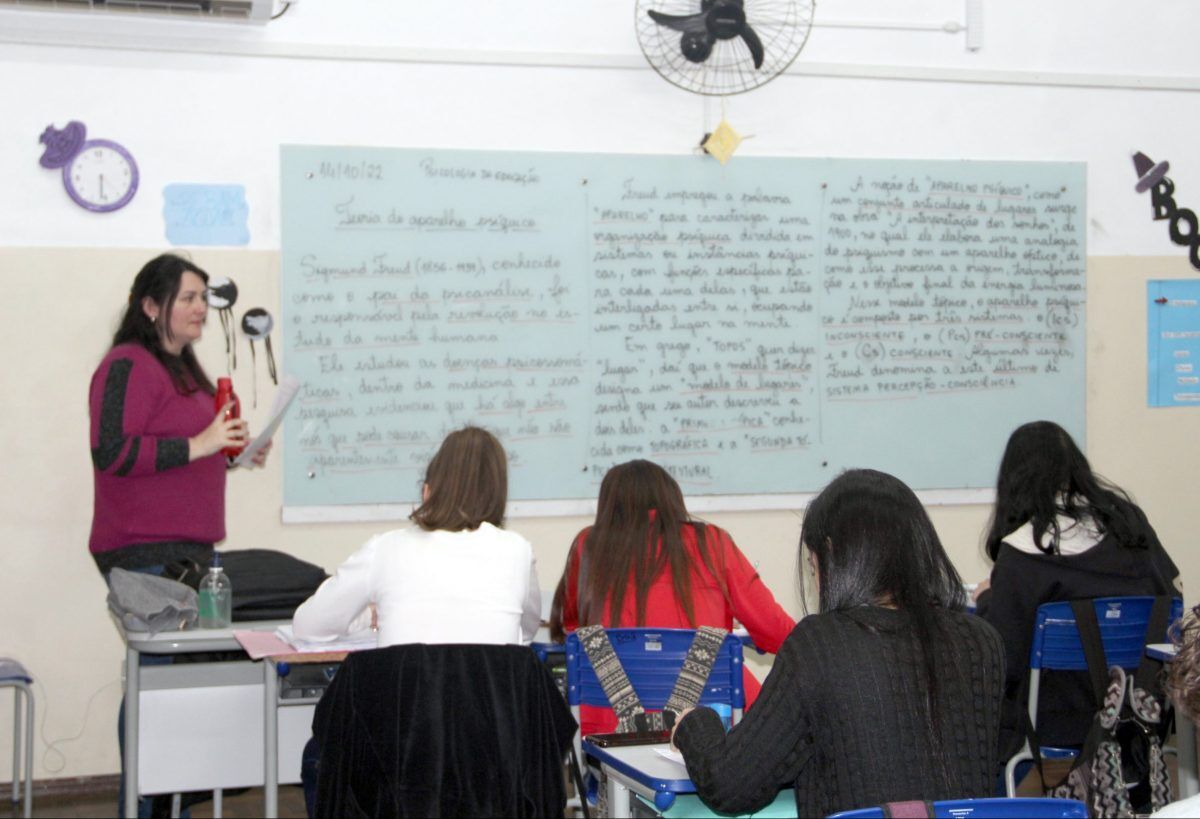 14/10/22 PSICOLOGIA DA EDUCAÇÃO
Teoria do aparelho psíquico
Sigmund Freud (1856-1939), conhecido
como o pai da psicanálise, foi
o responsável pela revolução no es-
tudo da mente humana
Ele estudou as doenças psicossomá-
ticas, dentro da medicina e essa
pesquisa evidenciou que há algo
mós que pode causar que não são
aparentemente
Freud empregou a palavra
"APARELHO" para caracterizar uma
organização psíquica dividida em
sistemas ou instâncias psíqui-
cas, com funções específicas pa-
ra cada uma delas, que estão
interligadas entre si, ocupando
um certo lugar na mente.
Em grego, "TOPOS" quer dizer
"lugar", daí que o modelo tópico
designa um "modelo de lugares"
sendo que seu autor descreveu a
dois deles: a "PRIM TÓPICA" conhe-
cida como TOPOGRÁFICA e a "SEGUNDA TÓ-
PICA
A noção de "APARELHO PSÍQUICO", como
um conjunto articulado de lugares surge
na obra "A interpretação dos sonhos", de
1900, no qual ele elabora uma analogia
do psiquismo com um aparelho óptico, de
como esse processa a origem, transforma-
ção e o objetivo final da energia luminosa
Nesse modelo tópico, o aparelho psíqui-
co é composto por três sistemas: o (ICS)
INCONSCIENTE, o (Pcs) PRÉ-CONSCIENTE
e o (Cs) CONSCIENTE. Algumas vezes,
Freud denomina a este último de
SISTEMA PERCEPÇÃO-CONSCIÊNCIA.
BOO